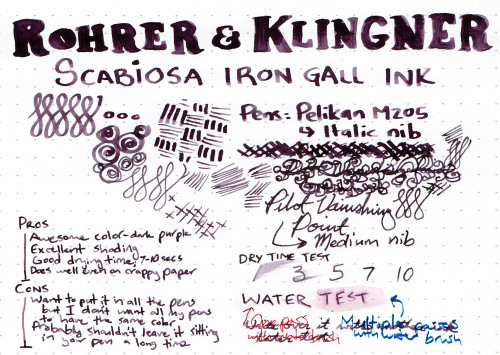 ROHRER & KLINGNER
SCABIOSA IRON GALL INK
Pens: Pelikan M205
↳ Italic nib
Pilot Vanishing
Point
↳ Medium nib
PROS
Awesome color-dark purple
Excellent shading
Good drying time, 7-10 secs
Does well even on crappy paper
CONS
Want to put it in all the pens
but I don't want all my pens
to have the same color
Probably shouldn't leave it sitting
in your pen a long time
DRY TIME TEST
3 5 7 10
WATER TEST
One pass
with water brush
Multiple passes
with water brush